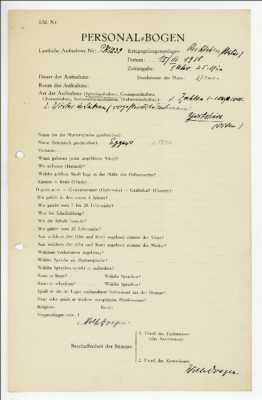 Lfd. Nr
PERSONAL-BOGEN
Lautliche Aufnahme Nr.: Kriegsgefangenenlager:
Datum: 1918
Zeitangabe:
Dauer der Aufnahme: Durchmesser der Platte:
Raum der Aufnahme:
Art der Aufnahme (Sprechaufnahme, Gesangsaufnahme,
Choraufnahme, Instrumentenaufnahme, Orchesteraufnahme): 1. Zahlen
2.
Name (in der Muttersprache geschrieben):
Name (lateinisch geschrieben):
Vorname:
Wann geboren (oder ungefähres Alter)?
Wo geboren (Heimat)?
Welche größere Stadt liegt in der Nähe des Geburtsortes?
Kanton — Kreis (Ujedz):
Departement — Gouvernement (Gubernija) — Grafschaft (County):
Wo gelebt in den ersten 6 Jahren?
Wo gelebt vom 7. bis 20. Lebensjahr?
Was für Schulbildung?
Wo die Schule besucht?
Wo gelebt vom 20. Lebensjahr?
Aus welchem Ort (Ort und Kreis angeben) stammt der Vater?
Aus welchem Ort (Ort und Kreis angeben) stammt die Mutter?
Welchem Volksstamm angehörig?
Welche Sprache als Muttersprache?
Welche Sprachen spricht er außerdem?
Kann er lesen? Welche Sprachen?
Kann er schreiben? Welche Sprachen?
Spielt er ein im Lager vorhandenes Instrument aus der Heimat?
Singt oder spielt er modern europäische Musikweisen?
Religion: Beruf:
Vorgeschlagen von: 1.
2. Wilh. Doegen
Beschaffenheit der Stimme:
1. Urteil des Fachmannes
(des Assistenten):
2. Urteil des Kommissars:
Wilh. Doegen